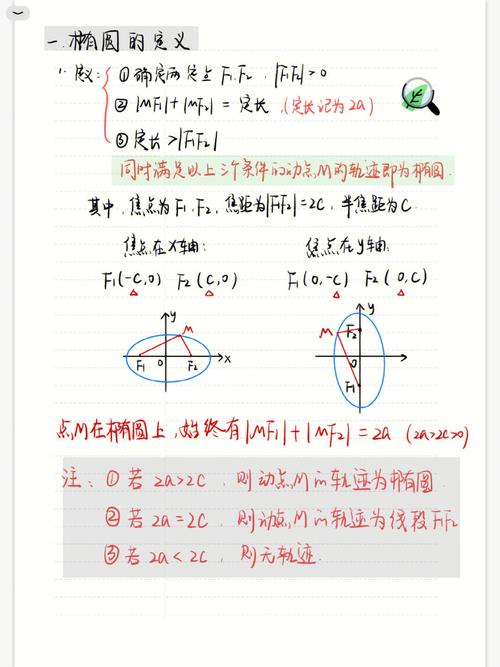 一.椭圆的定义
1. 定义: ①确定两定点F1.F2, |F1F2|>0
②|MF1|+|MF2|=定长.(定长记为2a)
③定长>|F1F2|
同时满足以上三个条件的动点M的轨迹即为椭圆.
其中,焦点为F1.F2,焦距为|F1F2|=2C,半焦距为C.
焦点在x轴: 焦点在y轴:
F1(-C,0) F2(C,0) F1(0,-C) F2(0,C)
y M F1 0 F2 x
y M F2 0 F1
点M在椭圆上,始终有|MF1|+|MF2|=2a (2a>2c>0)
注: ①若2a>2C,则动点M的轨迹为椭圆.
②若2a=2C,则动点M的轨迹为线段F1F2
③若2a<2C,则无轨迹.